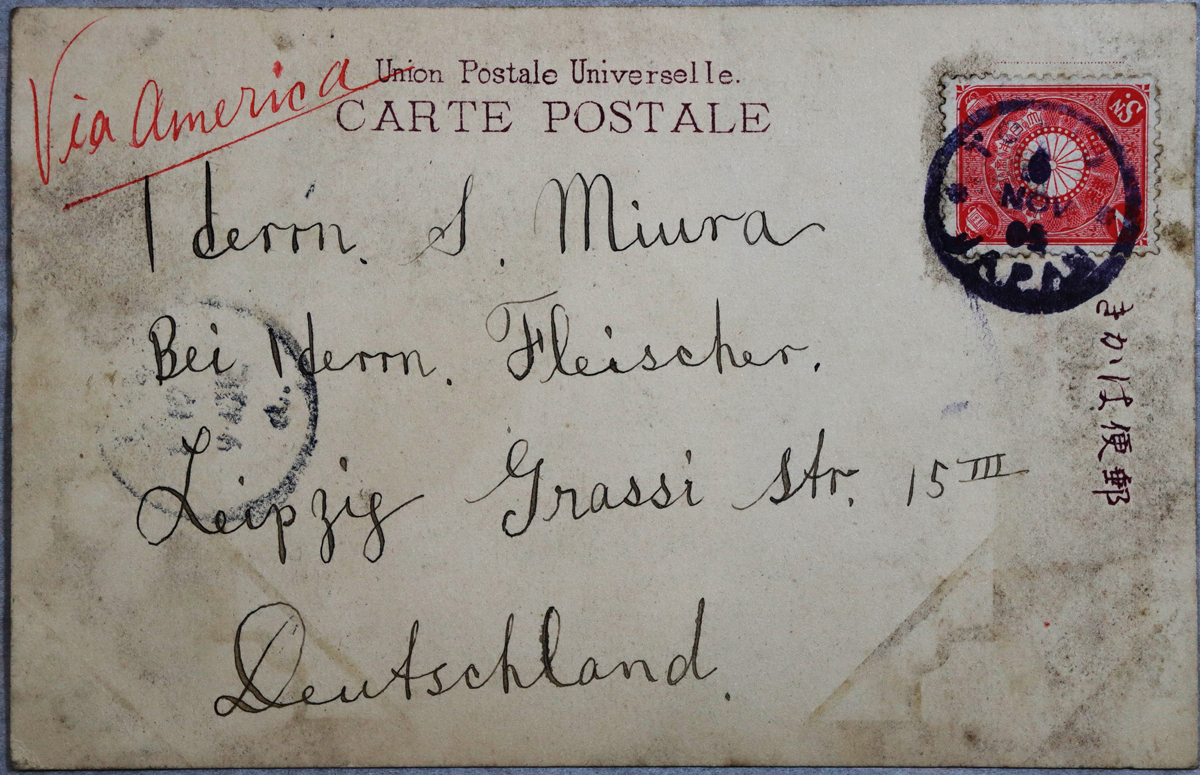 Via America
Union Postale Universelle.
CARTE POSTALE
Herrn. S. Miura
Bei Herrn. Fleischer.
Leipzig Grassi Str. 15 III
Deutschland.
NOV
JAPAN
郵便はかき